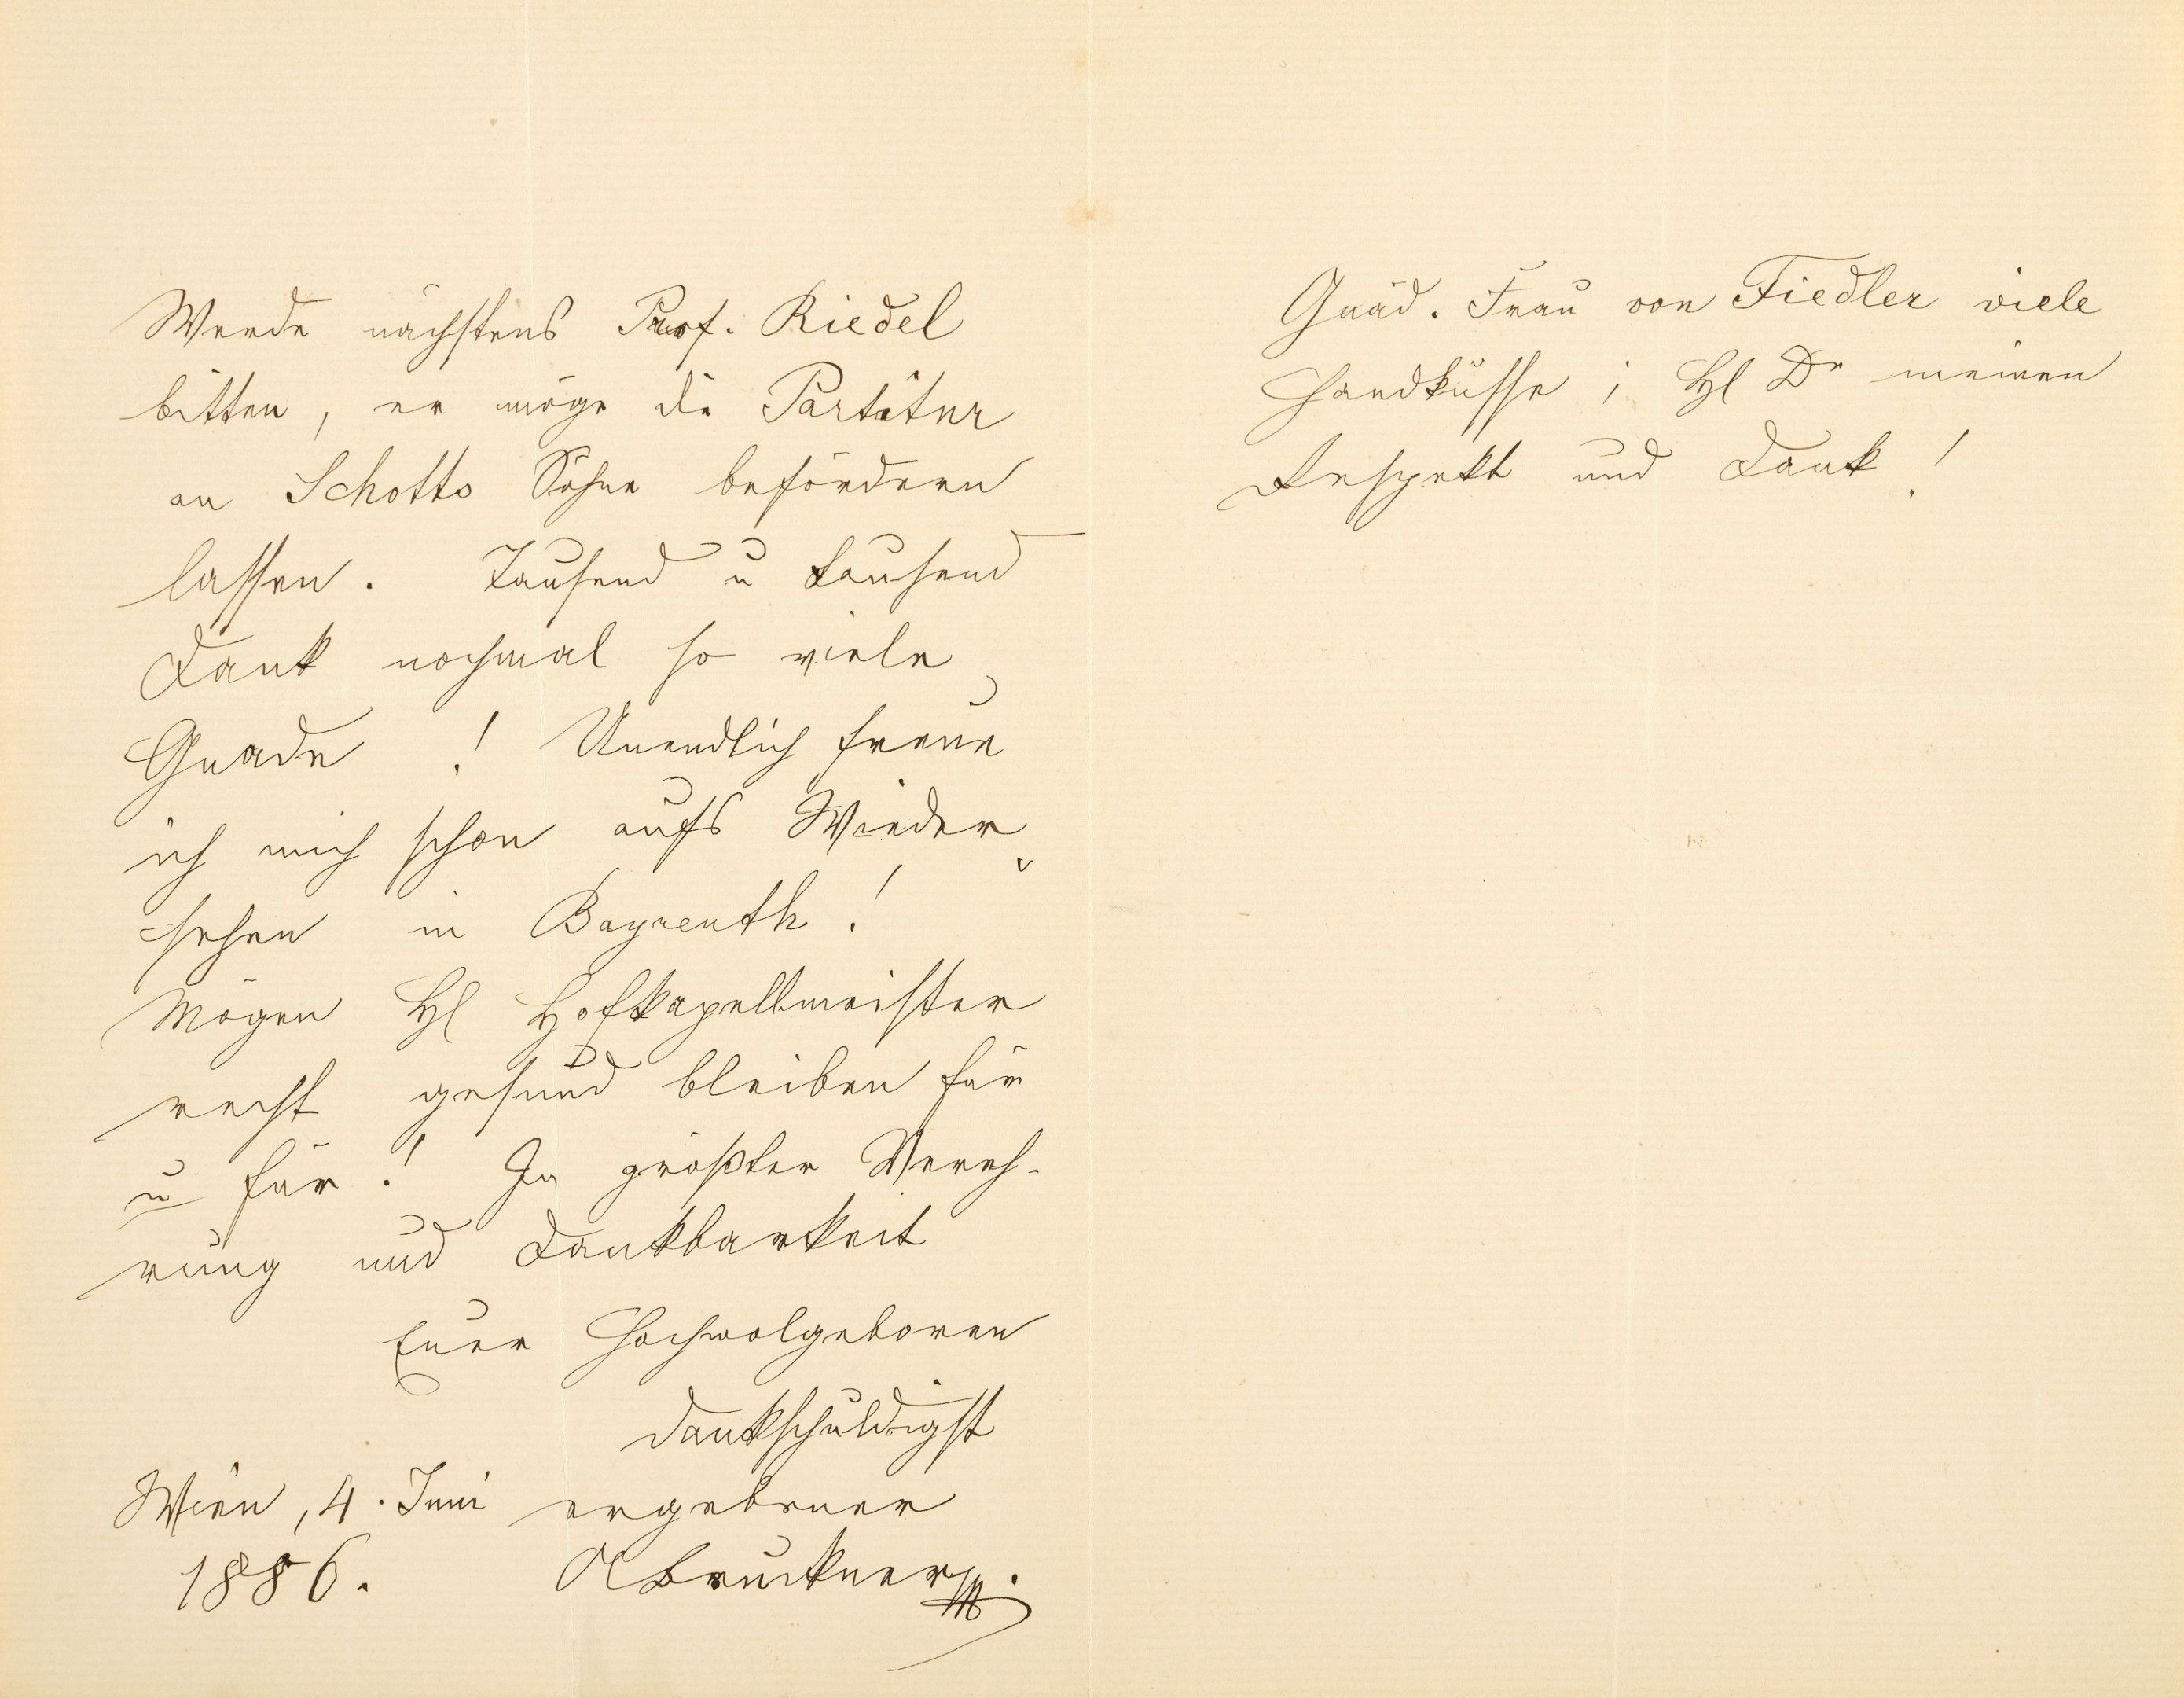 Werde nächstens Prof. Riedel
bitten, er möge die Partitur
an Schotts Söhne befördern
lassen. Tausend u tausend
Dank nochmal so viele
Gnade! Unendlich freue
ich mich schon aufs Wieder
sehen in Bayreuth!
Mögen Hl Hofkapellmeister
recht gesund bleiben für
u für! In größter Vereh-
rung und Dankbarkeit
Euer Hochwolgeboren
dankschuldigst
Wien, 4. Juni ergebener
1886. ABruckner
Gnäd. Frau von Fiedler viele
Handküsse; Hl Dr meinen
Respekt und Dank!